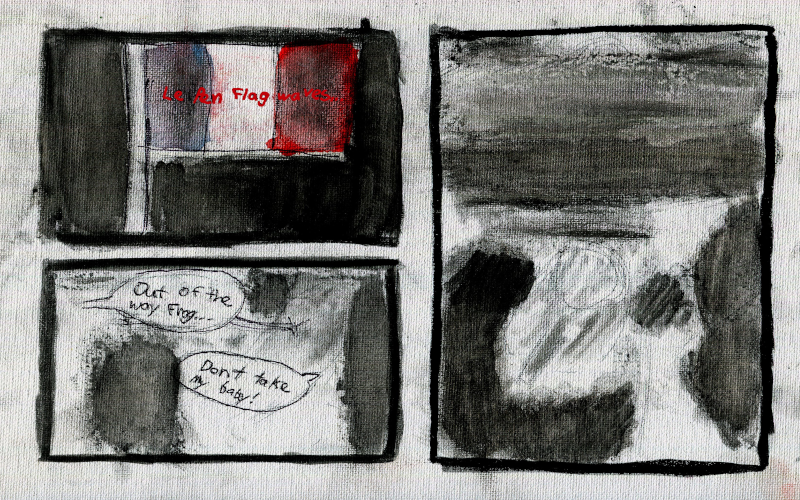 Le Pen Flag waves...
Out of the
way Flag...
Don't take
my baby!